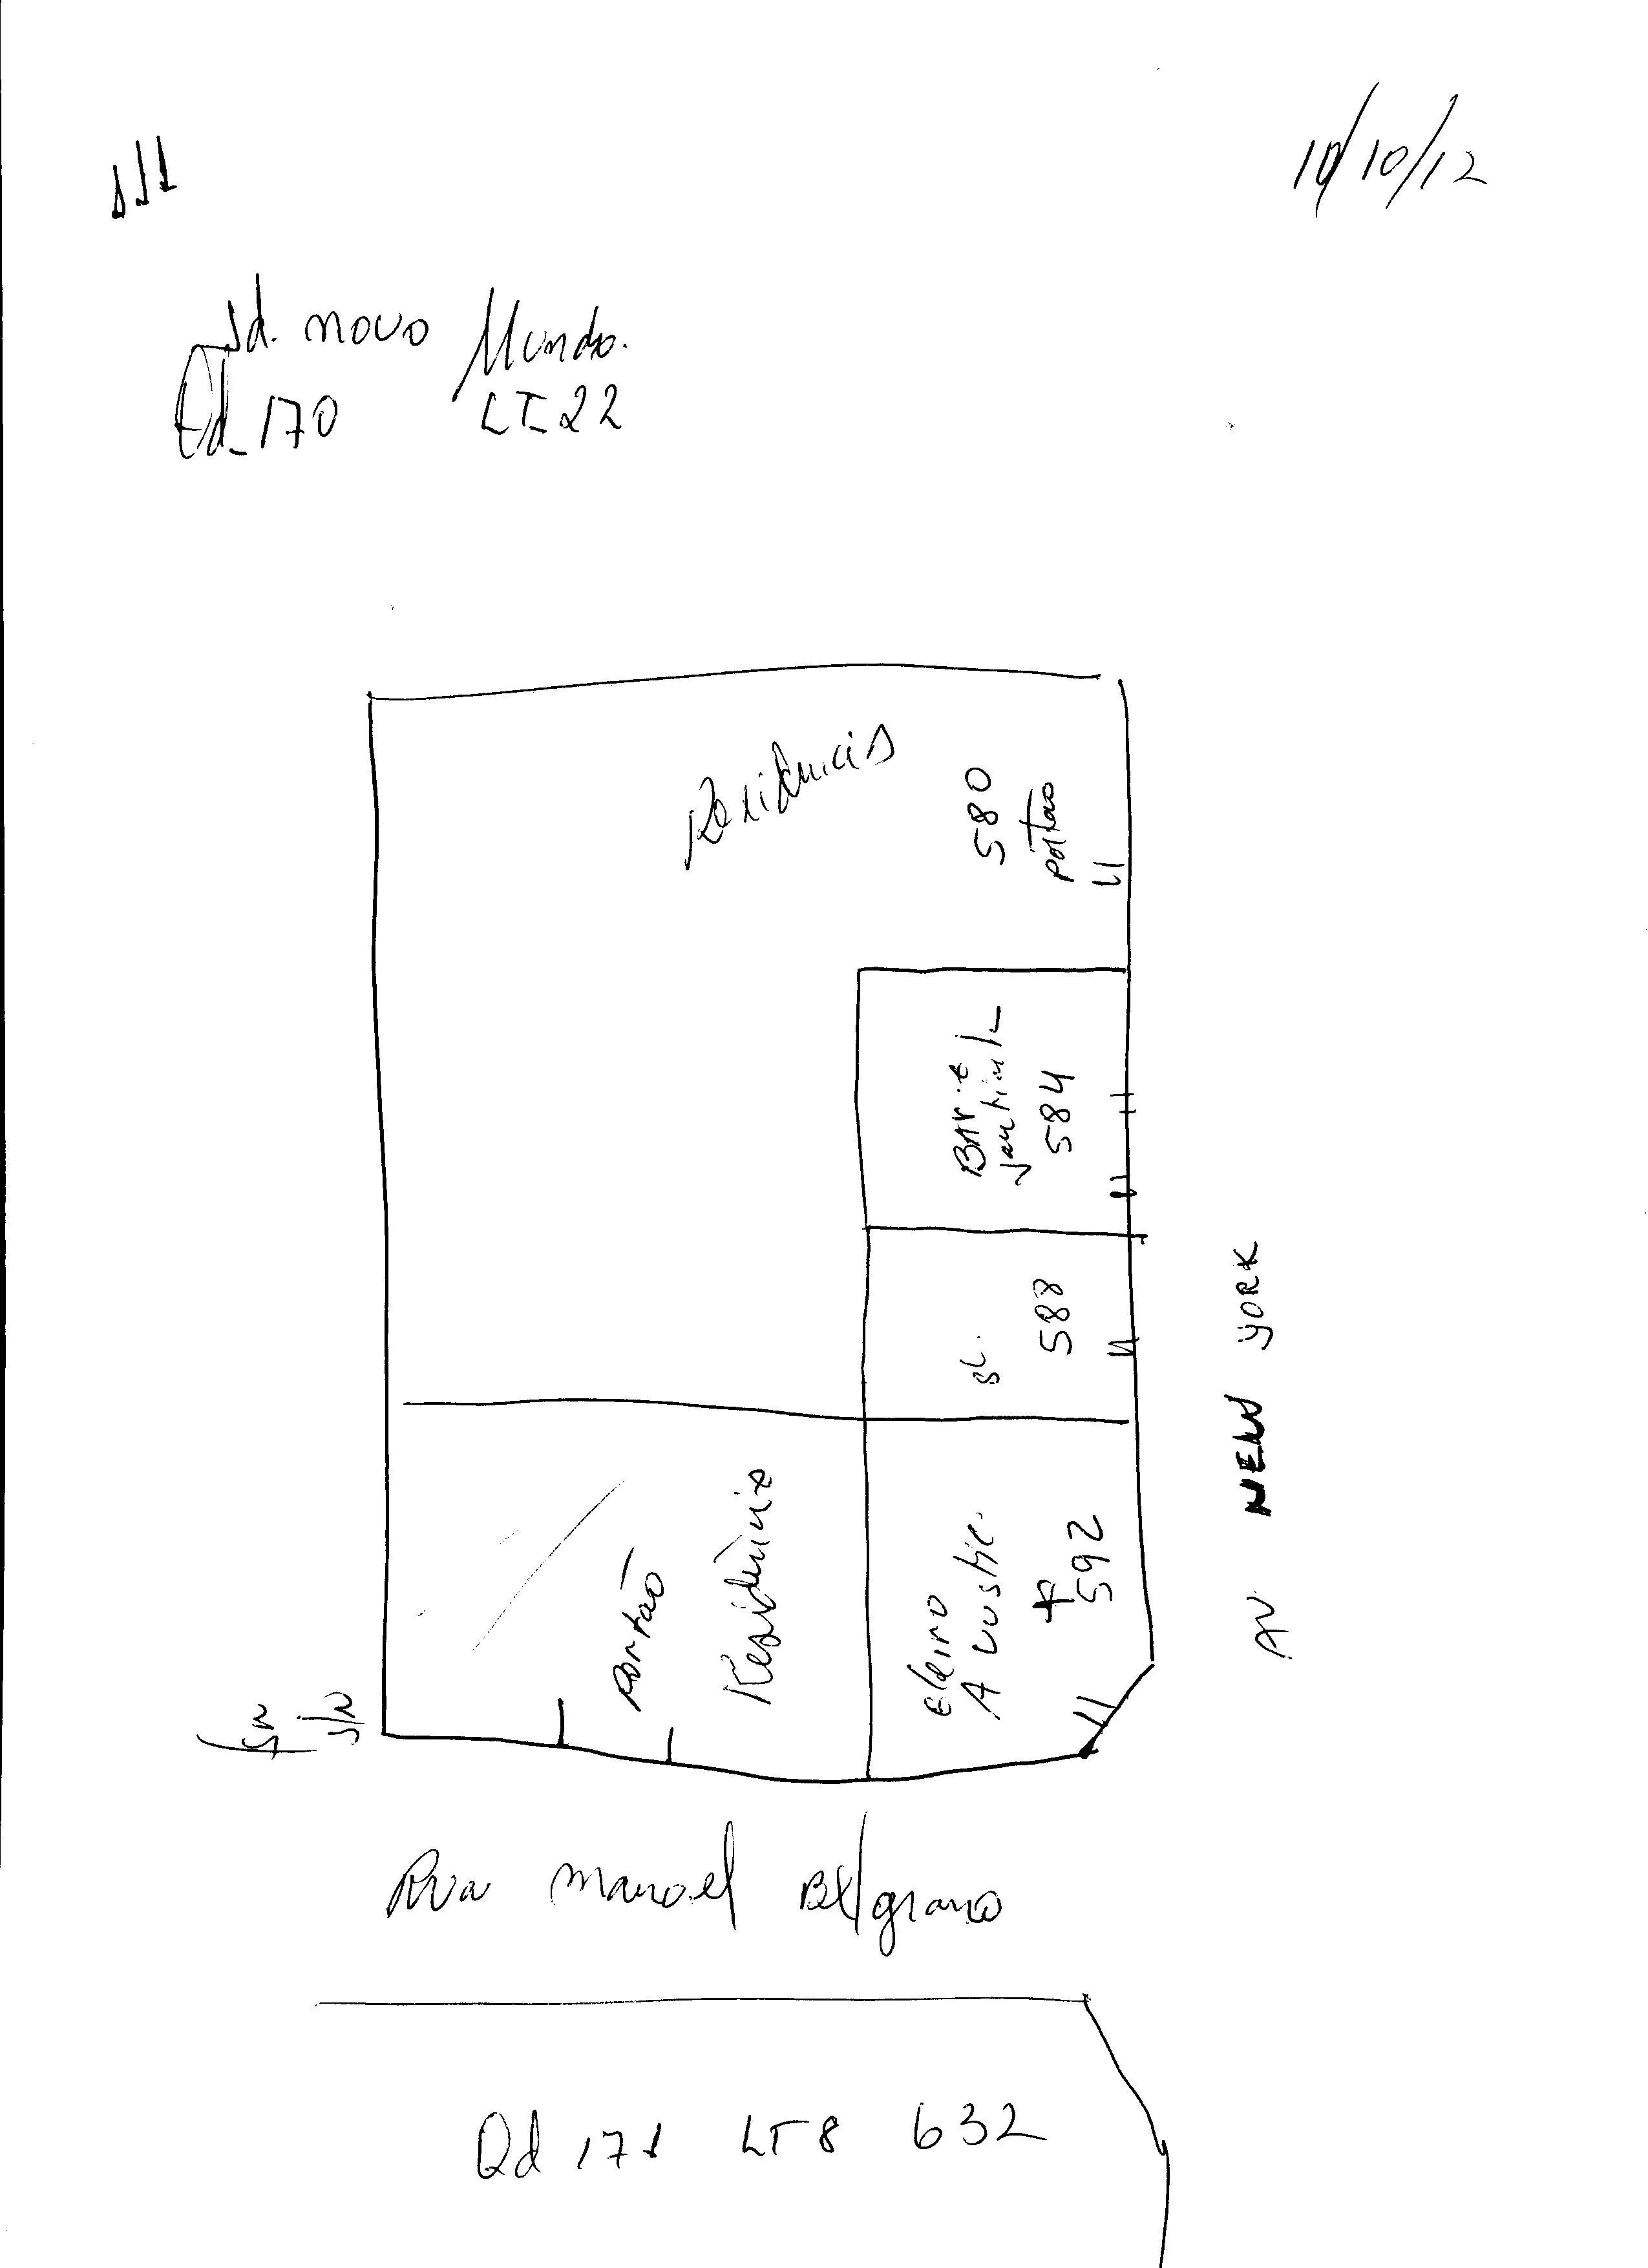 10/10/12
Jd. novo Mundo.
Qd_170 LT_22
Residencia
580
portao
BAr e
584
sl.
588
portão
Residência
Acustic.
592
S/N
S/N
AV NEW YORK
Rua manoel Belgrano
Qd 171 LT 8 632